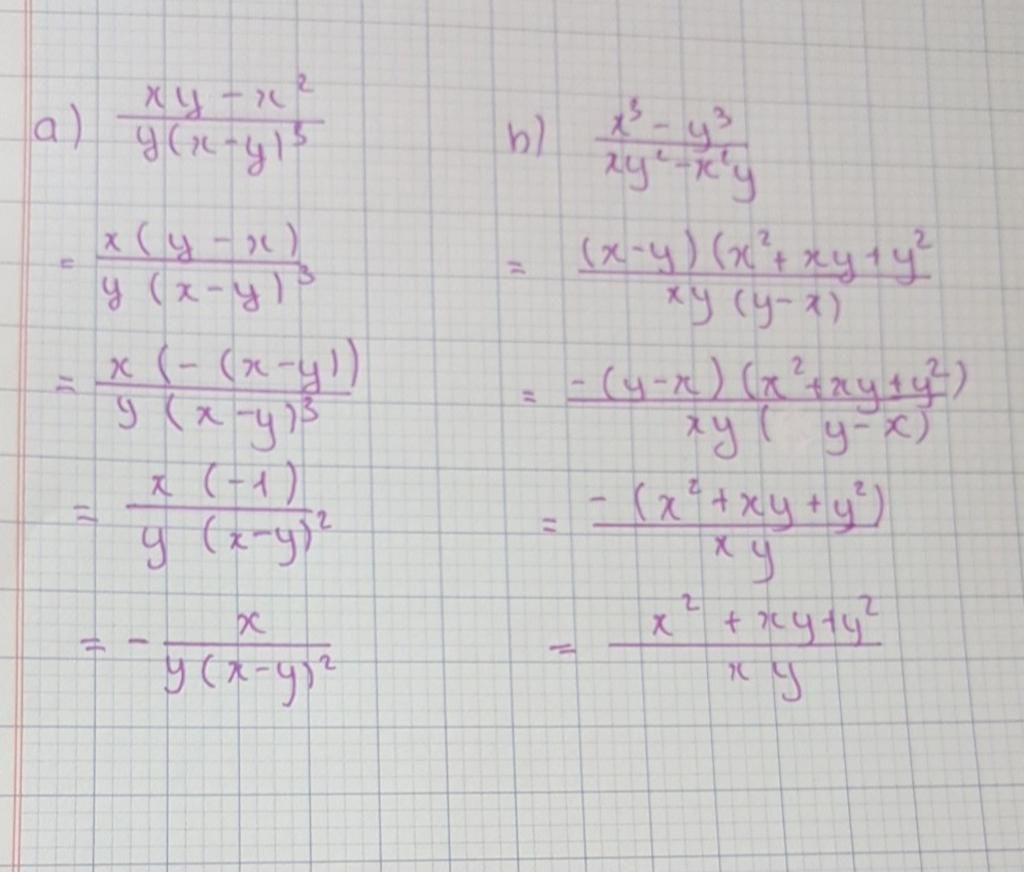 a) (xy - x²)/(y(x-y)³)
= (x(y - x))/(y (x-y)³)
= (x (-(x-y)))/(y (x-y)³)
= (x (-1))/(y (x-y)²)
= - x/(y(x-y)²)
b) (x³ - y³)/(xy² - x²y)
= ((x-y)(x² + xy + y²)/(xy (y-x))
= (-(y-x)(x²+xy+y²))/(xy (y-x))
= (-(x² + xy + y²))/(xy)
= (x² + xy + y²)/(xy)